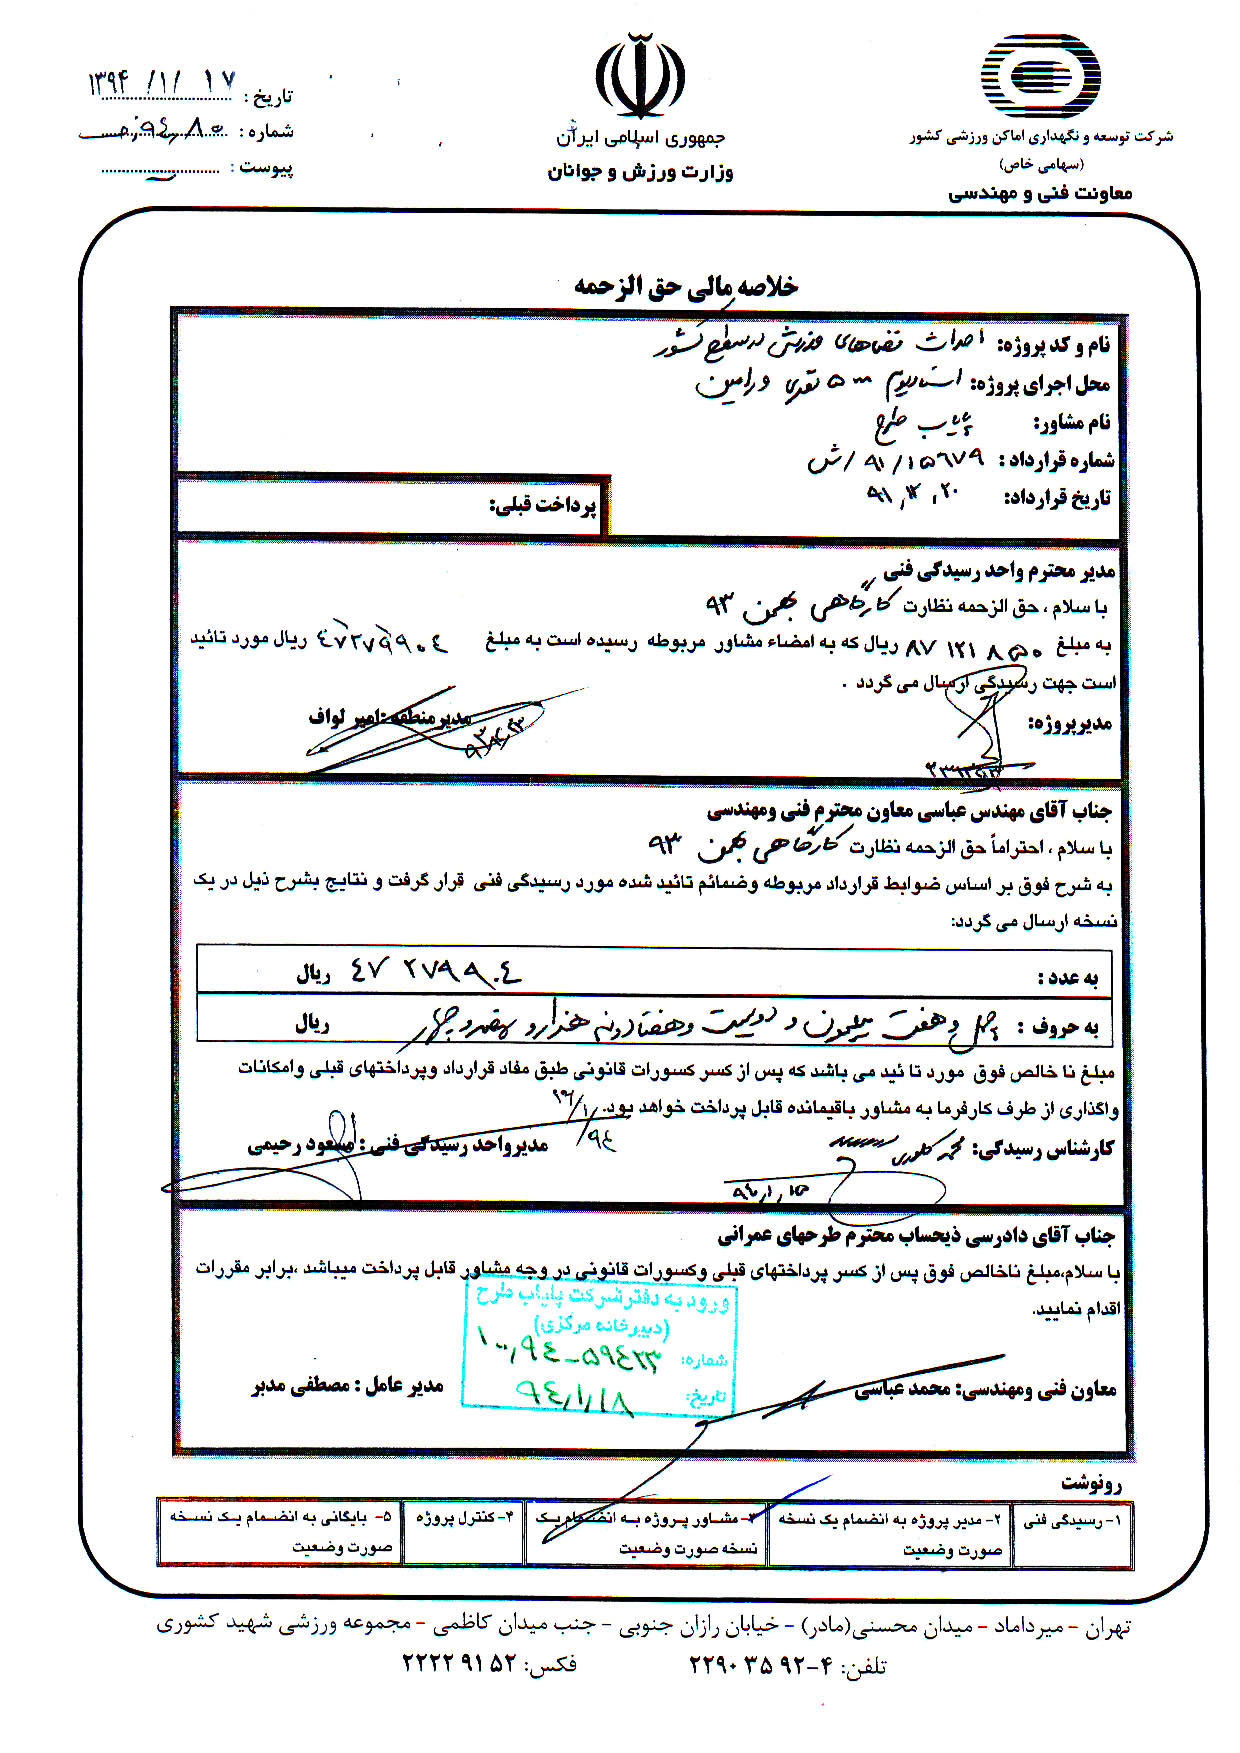 شرکت توسعه و نگهداری اماکن ورزشی کشور
(سهامی خاص)
معاونت فنی و مهندسی
جمهوری اسلامی ایران
وزارت ورزش و جوانان
تاریخ : ۱۳۹۴/۱/۱۷
شماره :
پیوست :
خلاصه مالی حق الزحمه
نام و کد پروژه: احداث فضاهای ورزشی در سطح کشور
محل اجرای پروژه: استادیوم ۵۰۰۰ نفری ورامین
نام مشاور: پایاب طرح
شماره قرارداد : ۹۱/۱۵۶۷۹/ش
تاریخ قرارداد: ۹۱,۱۲,۲۰
پرداخت قبلی:
مدیر محترم واحد رسیدگی فنی
با سلام ، حق الزحمه نظارت کارگاهی بهمن ۹۳
به مبلغ ۸۷ ۱۲۱ ۸۵۰ ریال که به امضاء مشاور مربوطه رسیده است به مبلغ ۴۷۲۷۹۹۰۴ ریال مورد تائید
است جهت رسیدگی ارسال می گردد .
مدیرپروژه:
مدیر منطقه :امیر لواف
جناب آقای مهندس عباسی معاون محترم فنی ومهندسی
با سلام ، احتراماً حق الزحمه نظارت کارگاهی بهمن ۹۳
به شرح فوق بر اساس ضوابط قرارداد مربوطه وضمائم تائید شده مورد رسیدگی فنی قرار گرفت و نتایج بشرح ذیل در یک
نسخه ارسال می گردد:
به عدد : ۴۷ ۲۷۹۹۰۴ ریال
به حروف : چهل و هفت میلیون و دویست و هفتاد و نه هزار و نهصد و چهار ریال
مبلغ نا خالص فوق مورد تا ئید می باشد که پس از کسر کسورات قانونی طبق مفاد قرارداد وپرداختهای قبلی وامکانات
واگذاری از طرف کارفرما به مشاور باقیمانده قابل پرداخت خواهد بود.
کارشناس رسیدگی:
۹۴,۱,۱۵
مدیرواحد رسیدگی فنی : مسعود رحیمی
جناب آقای دادرسی ذیحساب محترم طرحهای عمرانی
با سلام،مبلغ ناخالص فوق پس از کسر پرداختهای قبلی وکسورات قانونی در وجه مشاور قابل پرداخت میباشد ،برابر مقررات
اقدام نمایید.
ورود به دفتر شرکت پایاب طرح
(دبیرخانه مرکزی)
شماره: ۱۰۰,۹۴-۵۹۴۲۳
تاریخ: ۹۴,۱,۱۸
معاون فنی ومهندسی: محمد عباسی
مدیر عامل : مصطفی مدبر
رونوشت
۱- رسیدگی فنی
۲- مدیر پروژه به انضمام یک نسخه
صورت وضعیت
۳- مشاور پروژه به انضمام یک
نسخه صورت وضعیت
۴- کنترل پروژه
۵- بایگانی به انضمام یک نسخه
صورت وضعیت
تهران - میرداماد - میدان محسنی(مادر) - خیابان رازان جنوبی - جنب میدان کاظمی - مجموعه ورزشی شهید کشوری
تلفن: ۴-۹۲ ۳۵ ۲۲۹۰
فکس: ۵۲ ۹۱ ۲۲۲۲